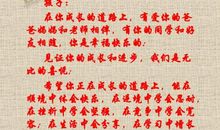 孩子：
在你成长的道路上，有爱你的爸
爸妈妈和老师相伴，有你的同学和好
友相随，你是幸福快乐的；
见证你的成长和进步，我们是无
比的喜悦；
希望你正在成长的道路上，能在
顺境中体会快乐，在逆境中学会忍耐，
在挫折中学会磨砺，在竞争中学会宽
容，在生活中会分享，在学习中懂